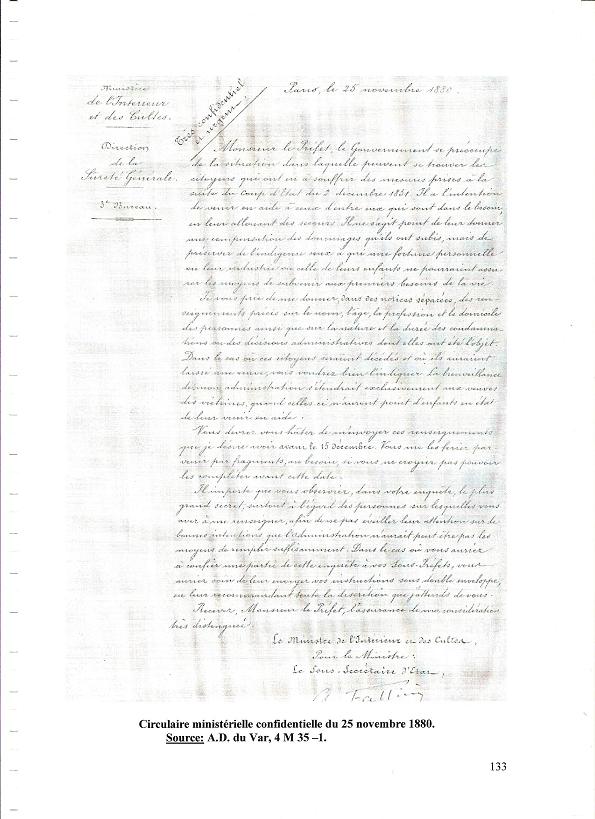 Ministère
de l'Intérieur
et des Cultes.
Direction
de la
Sûreté Générale.
3e Bureau.
Très confidentiel
et urgent.
Paris, le 25 novembre 1880.
Monsieur le Préfet, le Gouvernement se préoccupe
de la situation dans laquelle peuvent se trouver les
citoyens qui ont eu à souffrir des mesures prises à la
suite du Coup d'État du 2 décembre 1851. Il a l'intention
de venir en aide à ceux d'entre eux qui sont dans le besoin,
en leur allouant des secours. Il ne s'agit point de leur donner
une compensation des dommages qu'ils ont subis, mais de
préserver de l'indigence ceux à qui une fortune personnelle
ou leur industrie ou celle de leurs enfants ne pourraient assu-
rer les moyens de subvenir aux premiers besoins de la vie.
Je vous prie de me donner, dans des notices séparées, des ren-
seignements précis sur le nom, l'âge, la profession et le domicile
des personnes ainsi que sur la nature et la durée des condamna-
tions ou des décisions administratives dont elles ont été l'objet.
Dans le cas où ces citoyens seraient décédés et où ils auraient
laissé une veuve, vous voudrez bien l'indiquer. La bienveillance
de mon administration s'étendrait exclusivement aux veuves
des victimes, quand celles ci n'auront point d'enfants en état
de leur venir en aide.
Vous devrez vous hâter de m'envoyer ces renseignements
que je désire avoir avant le 15 décembre. Vous me les feriez par-
venir par fragments, au besoin, si vous ne croyez pas pouvoir
les compléter avant cette date.
Il importe que vous observiez, dans votre enquête, le plus
grand secret, surtout à l'égard des personnes sur lesquelles vous
avez à me renseigner, afin de ne pas éveiller leur attention sur de
bonnes intentions que l'administration n'aurait peut être pas les
moyens de remplir suffisamment. Dans le cas où vous auriez
à confier une partie de cette enquête à vos Sous-Préfets, vous
auriez soin de leur envoyer vos instructions sous double enveloppe,
en leur recommandant toute la discrétion que j'attends de vous.
Recevez, Monsieur le Préfet, l'assurance de ma considération
très distinguée.
Le Ministre de l'Intérieur et des Cultes,
Pour le Ministre:
Le Sous-Secrétaire d'État,
Circulaire ministérielle confidentielle du 25 novembre 1880.
Source: A.D. du Var, 4 M 35 –1.
133